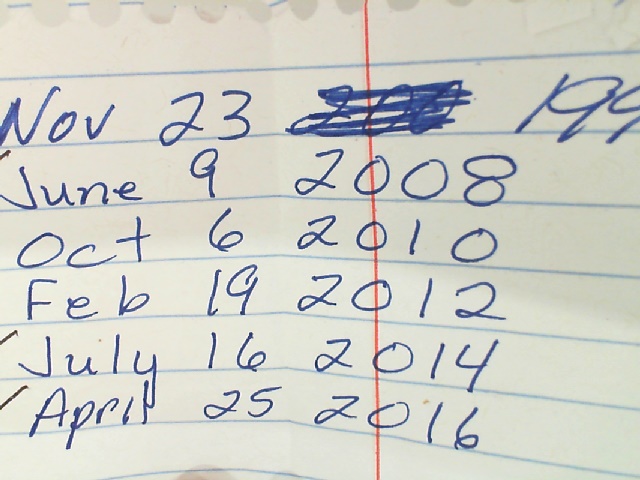 Nov 23 199
June 9 2008
Oct 6 2010
Feb 19 2012
July 16 2014
April 25 2016